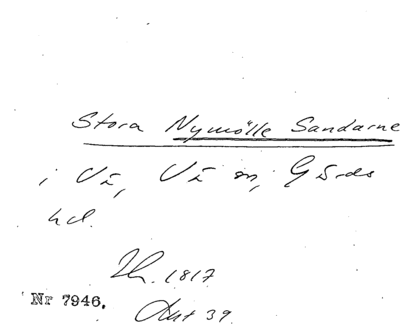 Stora Nymölle Sandarne
i Vä, Vä sn, Gärds
hd.
Lh. 1817
Nr 7946. Akt 39.